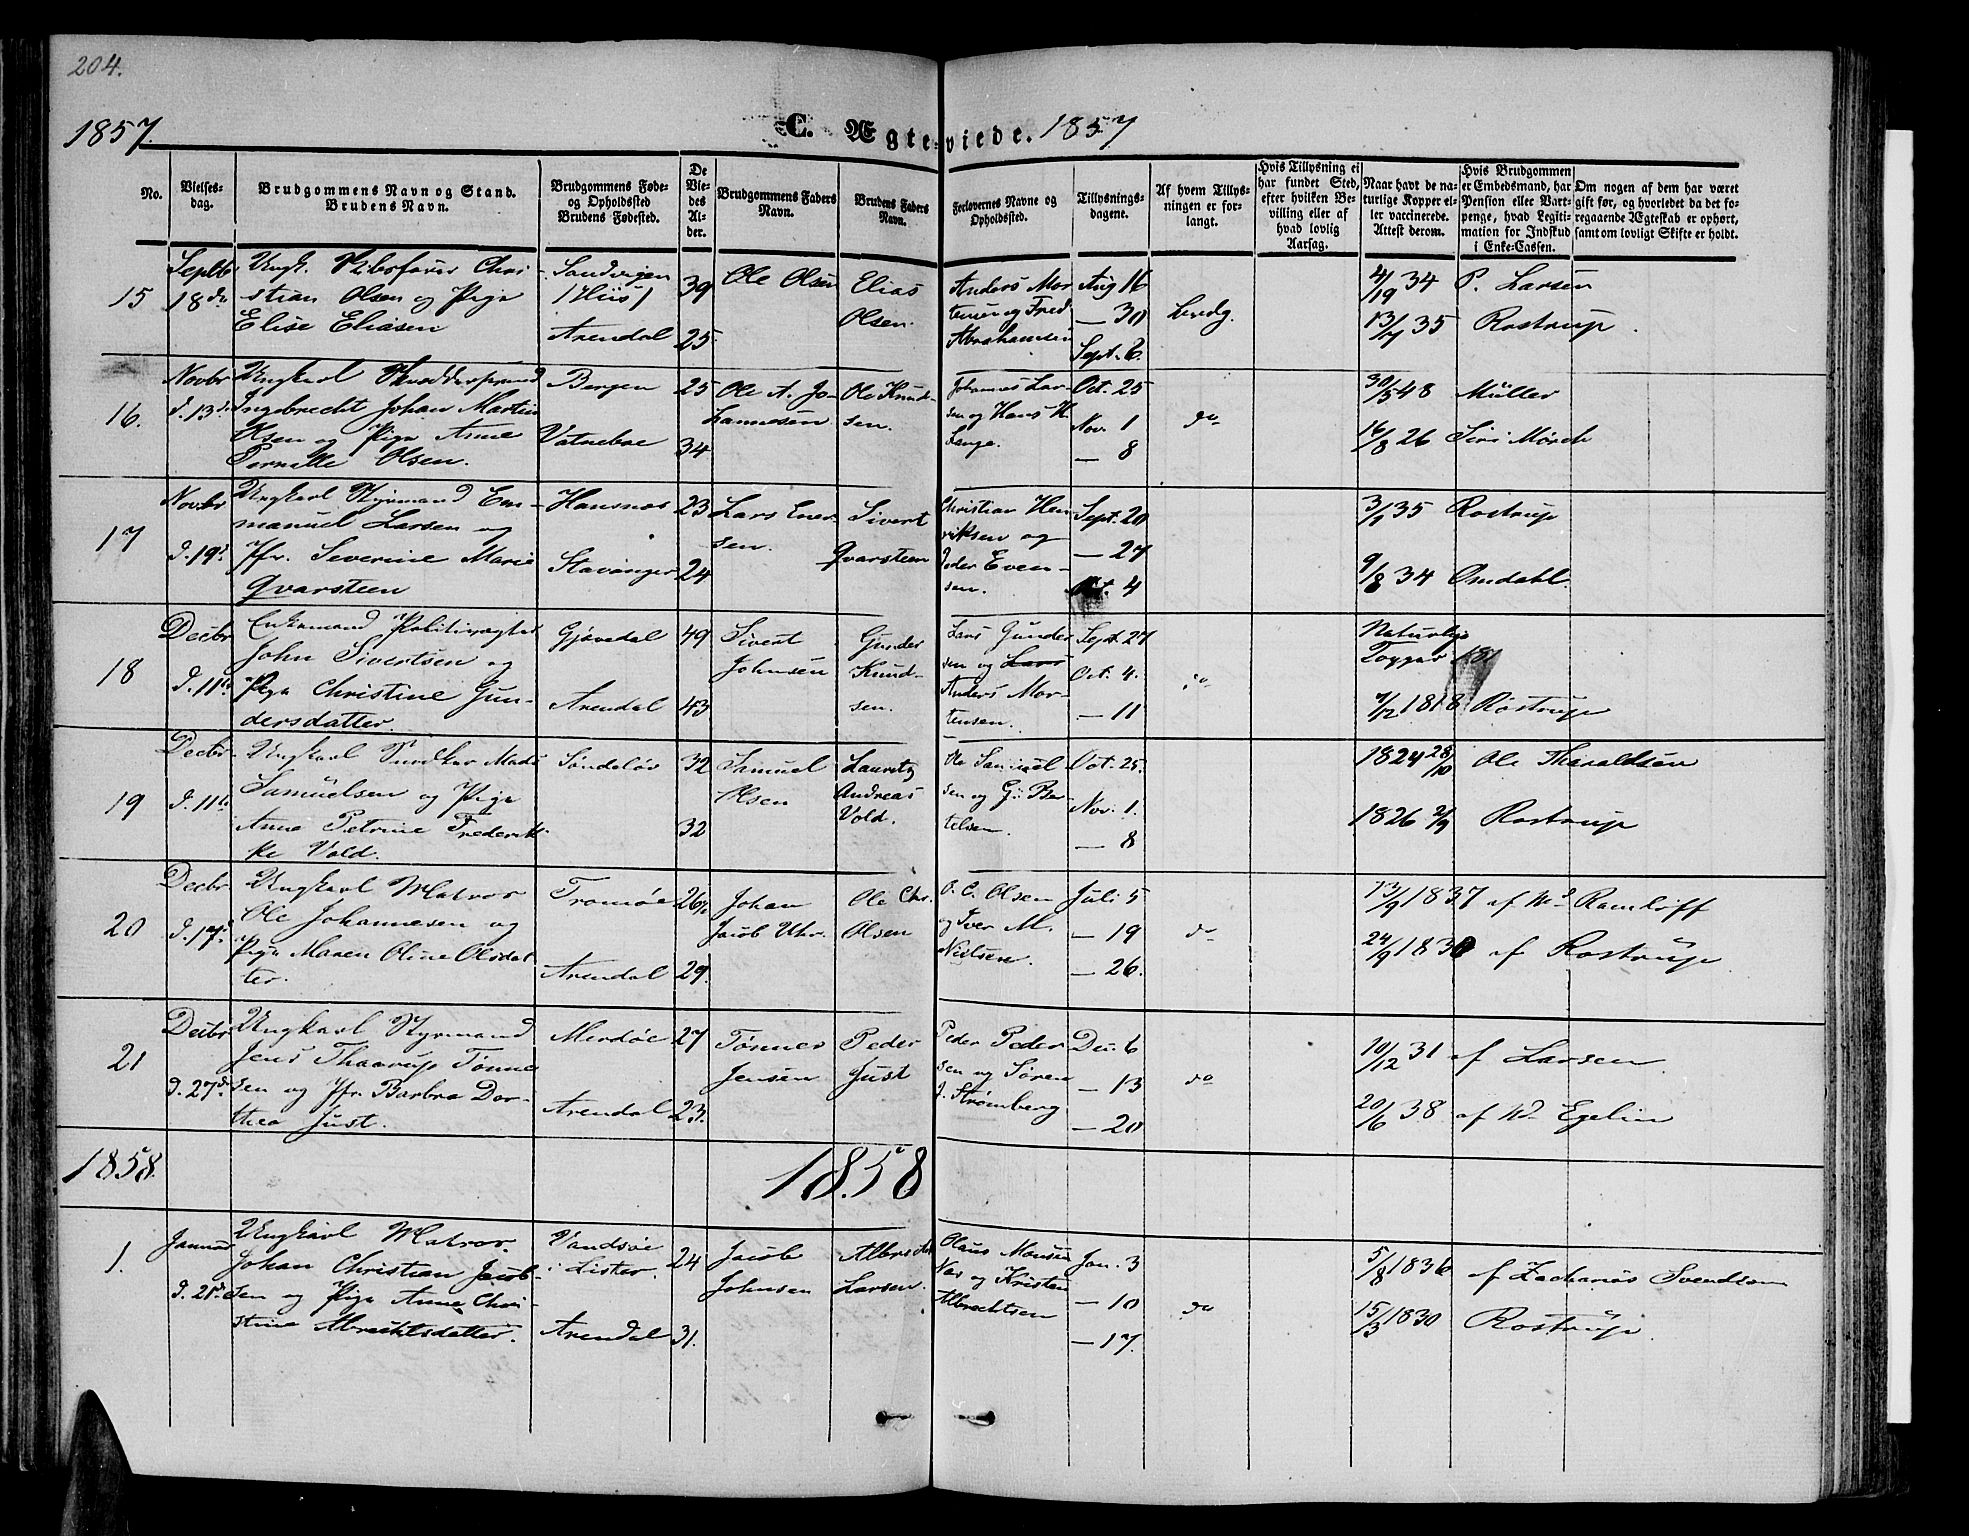 204.
1857.
C. Ægteviede. 1857
No.
Vielses-dag.
Brudgommens Navn og Stand. Brudens Navn.
Brudgommens Føde- og Opholdssted Brudens Fødested.
De Viedes Alder.
Brudgommens Faders Navn.
Brudens Faders Navn.
Forlovernes Navne og Opholdssted.
Tillysnings-dagene.
Af hvem Tillysningen er forlangt.
Hvis Tillysning ei har fundet Sted, efter hvilken Bevilling eller af hvad lovlig Aarsag.
Naar havt de naturlige Kopper eller vaccinerede. Attest derom.
Hvis Brudgommen er Embedsmand, har Pension eller Vartpenge, hvad Legitimation for Indskud i Enke-Cassen.
Om nogen af dem har været gift før, og hvorledet da det foregaaende Ægteskab er ophørt, samt om lovligt Skifte er holdt.
15 Septb 18de
Ungk. Chri-
stian Olsen og Pige
Elise Eliasen
Sandvigen
/Hiis/
Arendal
39
25
Ole Olsen
Elias
Olsen.
Anders Mor-
tensen og Fred.
Abrahamsen
Aug 16
— 30
Sept. 6.
4/19 34 P. Larsen
13/7 35 Rostrup.
16. Novbr d. 13de
Ungkarl Skrædersvend
Ingebrecht Johan Martin
Olsen og Pige Anne
Pernille Olsen.
Bergen
Vatneboe
25
34
Ole A. Jo-
hannesen
Ole Knud-
sen.
Johannes Lar-
sen og Hans H.
Lange.
Oct. 25
Nov. 1
— 8
do
30/5 48 Müller
16/8 26 Siri Mørch
17 Novbr d. 19de
Ungkarl Styrmand Em-
manuel Larsen og
Jfr. Severine Marie
Qvarsteen
Hansnæs
Stavanger
23
24
Lars Ener-
sen.
Sivert
Qvarsteen
Christian Hen-
riksen og
Peder Even-
sen.
Sept. 20
— 27
Oct. 4
3/9 35 Rostrup
9/8 34 Omdahl.
18 Decbr d. 11te
Enkemand Politivægter
John Sivertsen og
Pige Christine Gun-
dersdatter.
Gjøvedal
Arendal
49
43
Sivert
Johnsen
Gunder
Knud-
sen.
Lars Gunder-
sen og Lars
Anders Mor-
tensen.
Sept. 27
Oct. 4.
— 11
do
Naturlige
Kopper
7/12 1818 Rostrup
19 Decbr d. 11te
Ungkarl Mads
Samuelsen og Pige
Anne Petrine Frederik-
ke Vold.
Søndeløv
32
32
Samuel
Olsen
Lauritz
Andreas
Vold.
Ole Samuel-
sen og G. Ber-
telsen.
Oct. 25.
Nov. 1.
— 8
1824 28/10 Ole Tharaldsen
1826 2/9 Rostrup
20 Decbr d. 17de
Ungkarl Matros
Ole Johannesen og
Pige Maren Oline Olsdat-
ter.
Tromøe
Arendal
26½
29.
Johan
Jacob Uhr.
Ole Chr.
Olsen
O. C. Olsen
og Iver M.
Nielsen.
Juli 5
— 19
— 26.
do
13/9 1837 af Md Ramløff
24/9 1830 af Rostrup.
21 Decbr d. 27de
Ungkarl Styrmand
Jens Thaarup Tønne-
sen og Jfr. Barbra Dor-
thea Just.
Merdøe
Arendal
27
23.
Tønnes
Jensen
Peder
Just
Peder Peder-
sen og Søren
J. Strømberg
Dec. 6
— 13
— 20
do
10/12 31 af Larsen.
20/6 38 af Md Egelin
1858. 1858
1. Januar d. 21de
Ungkarl Matros
Johan Christian Jacob-
sen og Pige Anne Chri-
stine Albrechtsdatter.
Vandsøe
i Lister.
Arendal
24
31.
Jacob
Johnsen
Albrecht
Larsen.
Olaus Monsen
Næs og Kristen
Albrechtsen
Jan. 3
— 10
— 17.
do
5/8 1836 af Zacharias Svendsen
15/3 1830 Rostrup.